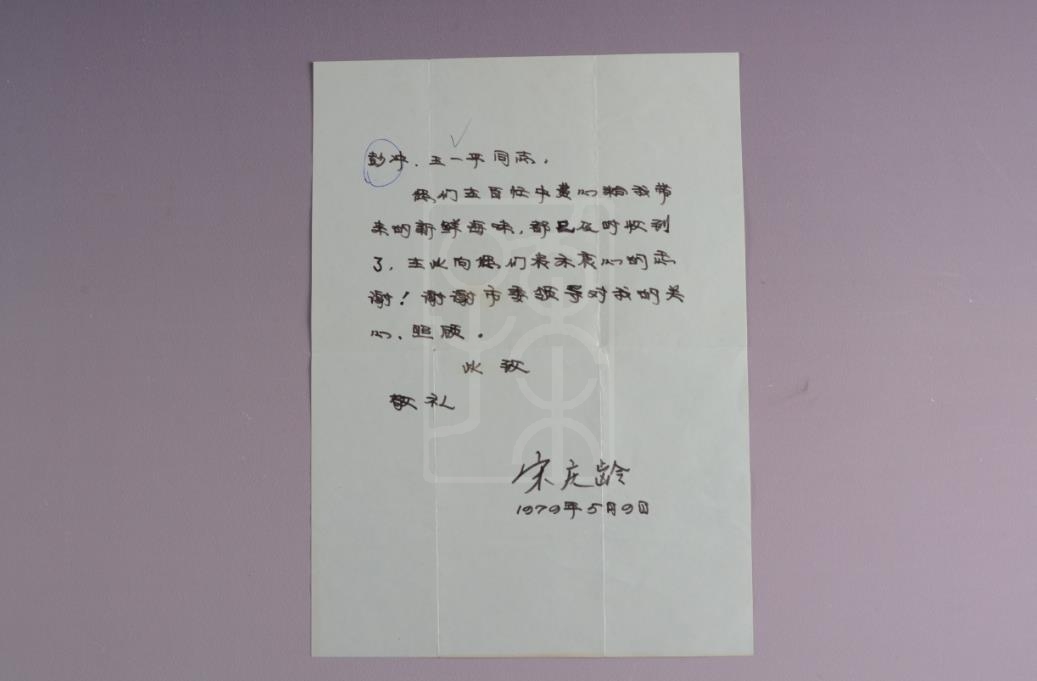 彭冲、王一平同志,
您们在百忙中费心给我带
来的新鲜海味,都已及时收到
了,在此向您们表示衷心的感
谢!谢谢市委领导对我的关
心、照顾。
此致
敬礼
宋庆龄
1979年5月9日